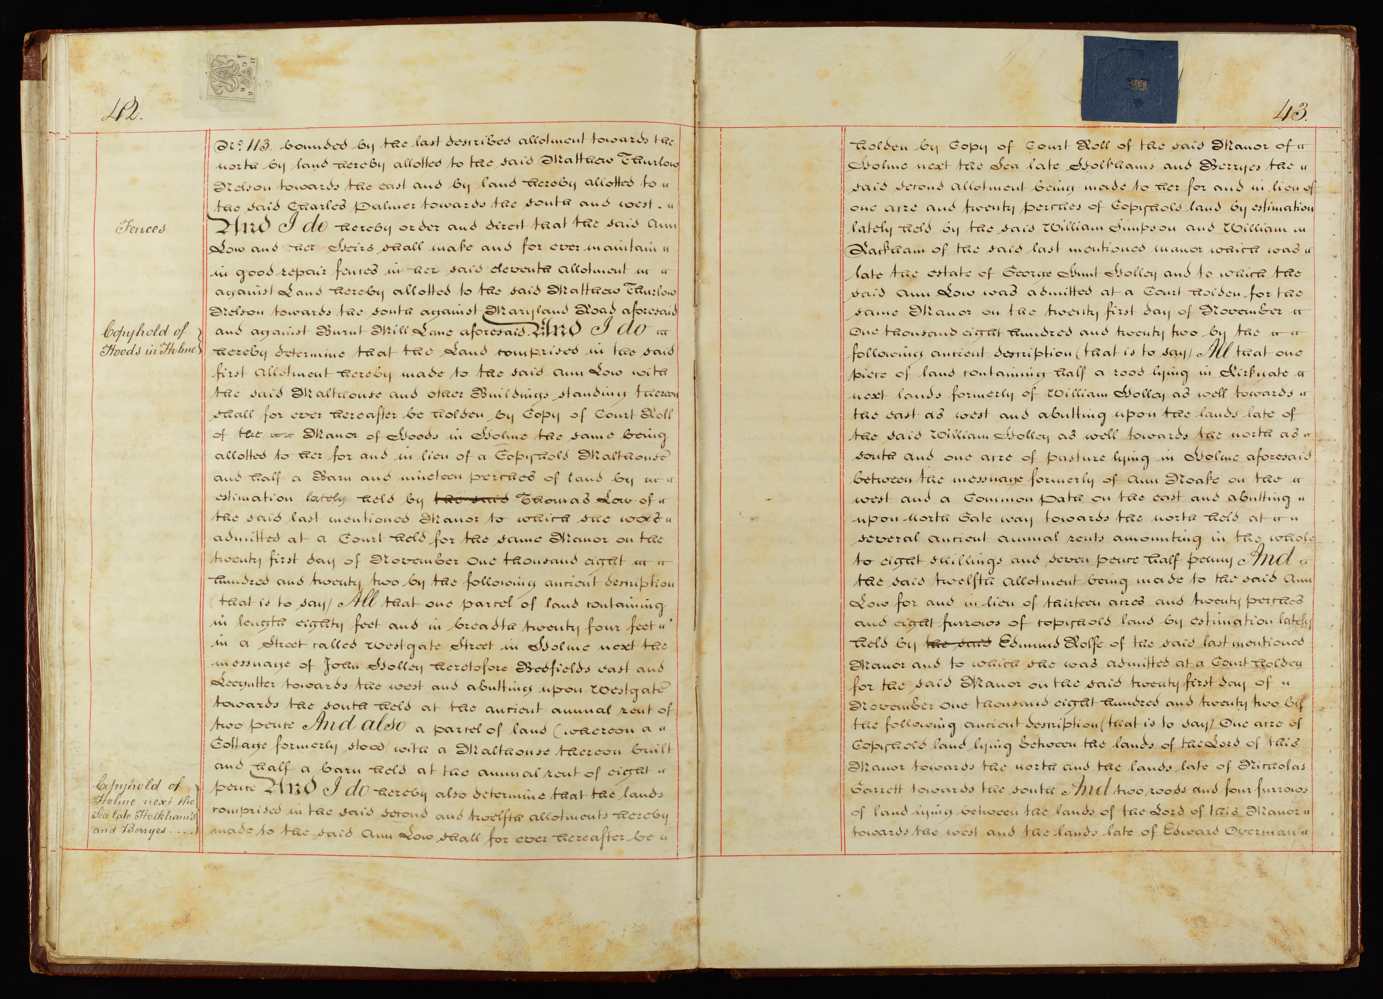 42.
No. 113. bounded by the last described allotment towards the
north by land hereby allotted to the said Matthew Thurlow
Nelson towards the east and by land hereby allotted to "
the said Charles Palmer towards the south and west. "
Fences
And I do hereby order and direct that the said Ann
Low and her Heirs shall make and for ever maintain "
in good repair fences in her said eleventh allotment " "
against Land hereby allotted to the said Matthew Thurlow
Nelson towards the south against Maryland Road aforesaid
Copyhold of
Hoods in Holme
and against Burnt Mill Lane aforesaid. And I do "
hereby determine that the Land comprised in the said
first Allotment hereby made to the said Ann Low with
the said Malthouse and other Buildings standing thereon
shall for ever hereafter be holden by Copy of Court Roll
of the Manor of Hoods in Holme the same being
allotted to her for and in lieu of a Copyhold Malthouse
and half a Barn and nineteen perches of land by " "
estimation lately held by the said Thomas Low of "
the said last mentioned Manor to which she was "
admitted at a Court held for the same Manor on the
twenty first day of November One thousand eight " "
hundred and twenty two by the following ancient description
(that is to say) All that one parcel of land containing
in length eighty feet and in breadth twenty four feet "
in a Street called Westgate Street in Holme next the
messuage of John Holley heretofore Bedfields east and
towards the west and abutting upon Westgate
towards the south held at the ancient annual rent of
two pence And also a parcel of land (whereon a "
Cottage formerly stood) with a Malthouse thereon built
and half a barn held at the annual rent of eight "
Copyhold of
Holme next the
Sea late Holkhams
and Berryes ....
pence And I do hereby also determine that the lands
comprised in the said second and twelfth allotments hereby
made to the said Ann Low shall for ever hereafter be "
43.
holden by Copy of Court Roll of the said Manor of "
Holme next the Sea late Holkhams and Berryes the "
said second allotment being made to her for and in lieu of
one acre and twenty perches of Copyhold land by estimation
lately held by the said William Simpson and William "
Rackham of the said last mentioned manor which was "
late the estate of George Hunt Holley and to which the
said Ann Low was admitted at a Court holden for the
same Manor on the twenty first day of November "
One thousand eight hundred and twenty two by the " "
following ancient description (that is to say) All that one
piece of land containing half a rood lying in Kirkgate "
next lands formerly of William Holley as well towards "
the east as west and abutting upon the lands late of
the said William Holley as well towards the north as "
south and one acre of pasture lying in Holme aforesaid
between the messuage formerly of Ann Noake on the "
west and a Common path on the east and abutting "
upon North Gate way towards the north held at " "
several ancient annual rents amounting in the whole
to eight shillings and seven pence half penny And "
the said twelfth allotment being made to the said Ann
Low for and in lieu of thirteen acres and twenty perches
and eight furrows of copyhold land by estimation lately
held by the said Edmund Rolfe of the said last mentioned
Manor and to which she was admitted at a Court holden
for the said Manor on the said twenty first day of "
November One thousand eight hundred and twenty two by
the following ancient description (that is to say) One acre of
Copyhold land lying between the lands of the Lord of this
Manor towards the north and the lands late of Nicholas
Garrett towards the south And two roods and four furrows
of land lying between the lands of the Lord of this Manor "
towards the west and the lands late of Edward Overman "